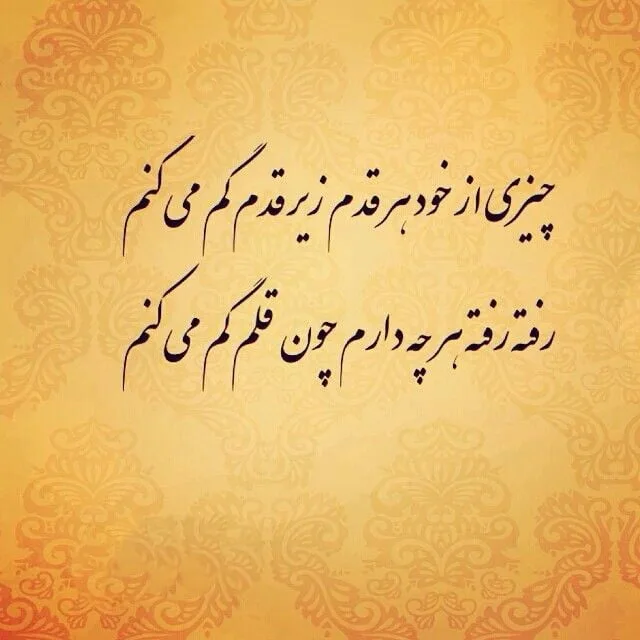 چیزی از خود هر قدم زیر قدم گم می کنم
رفته رفته هر چه دارم چون قلم گم می کنم